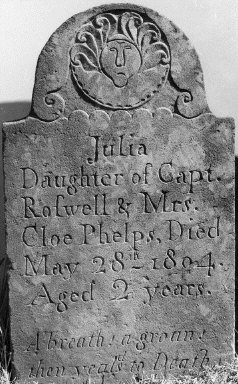 Julia
Daughter of Capt.
Roſwell & Mrs.
Cloe Phelps, Died
May 28th 1804.
Aged 2 years.
A breath: a groan:
then yealds to Death